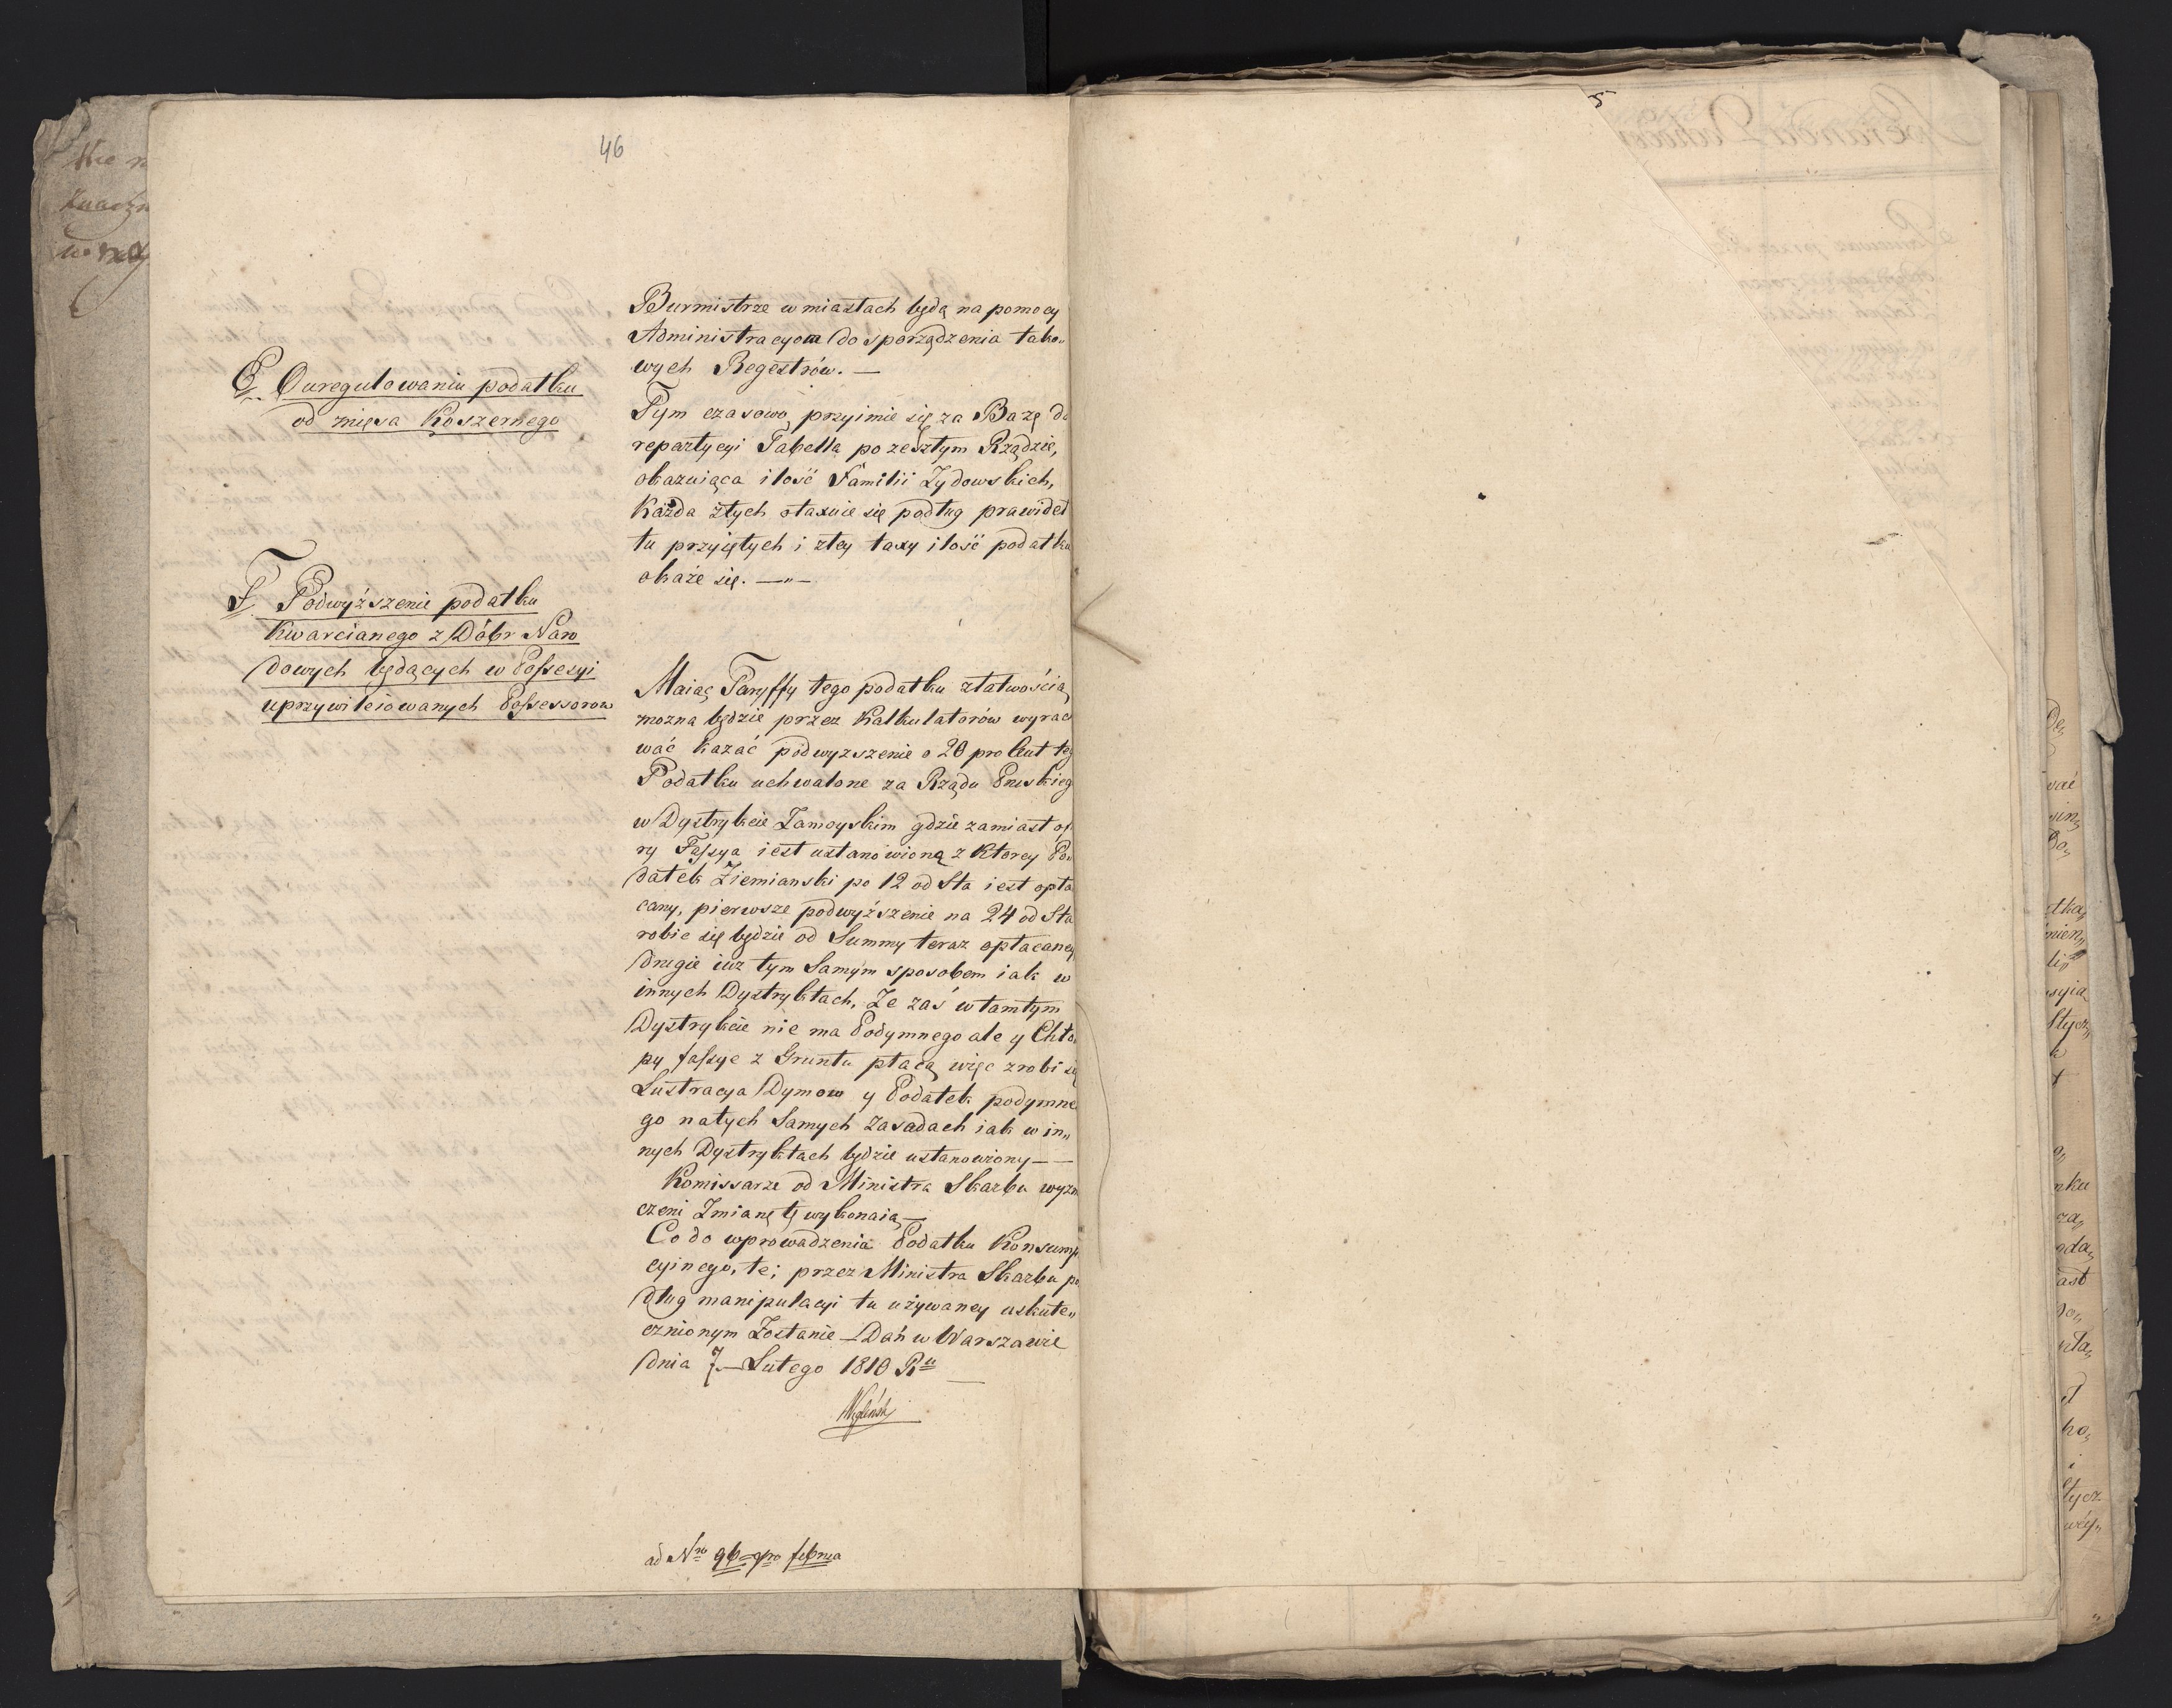 46
Burmistrze w miastach będą na pomocy
Administracyom do sporządzenia tako„
wych Regestrów. —
E. O uregulowaniu podatku
od mięsa Koszernego
Tym czasowo przyimie się za Bazę do
repartycyi Tabella po zeszłym Rządzie,
okazuiąca ilość Familii Żydowskich,
Każda z tych otaxuie się podług prawideł
tu przyiętych i z tey taxy ilość podatku
okaże się. —„—
F. Podwyższenie podatku
Kwarcianego z Dóbr Naro
dowych będących w Possesyi
uprzywileiowanych Possessorow
Maiąc Taryffy tego podatku z łatwością
można będzie przez Kalkulatorów wyrac
wać kazać podwyzszenie o 20 pro Cent teg
Podatku uchwalone za Rządu Pruskieg
w Dystrykcie Zamoyskim gdzie zamiast of
ry Fassya iest ustanowioną z Ktorey Po„
datek Ziemianski po 12 od Sta iest opła
cany, pierwsze podwyższenie na 24 od Sta
robic się będzie od Summy teraz opłacaney
drugie iuz tym Samym sposobem iak w
innych Dystryktach, Ze zaś w tamtym
Dystrykcie nie ma Podymnego ale y Chło„
py fassye z Gruntu płacą więc zrobi się
Lustracya Dymow y Podatek podymne
go na tych Samych Zasadach iak w in„
nych Dystryktach będzie ustanowiony — —
Komissarze od Ministra Skarbu wyzn
czeni Zmianę tę wykonaią —
Co do wprowadzenia Podatku Konsump
cyinego, te; przez Ministra Skarbu po
dług manipulacyi tu używaney uskute„
cznionym Zostanie — Dań w Warszawie
dnia 7. — Lutego 1810 Ru —
Węgleński
ad Nro 96 — pro februa
5